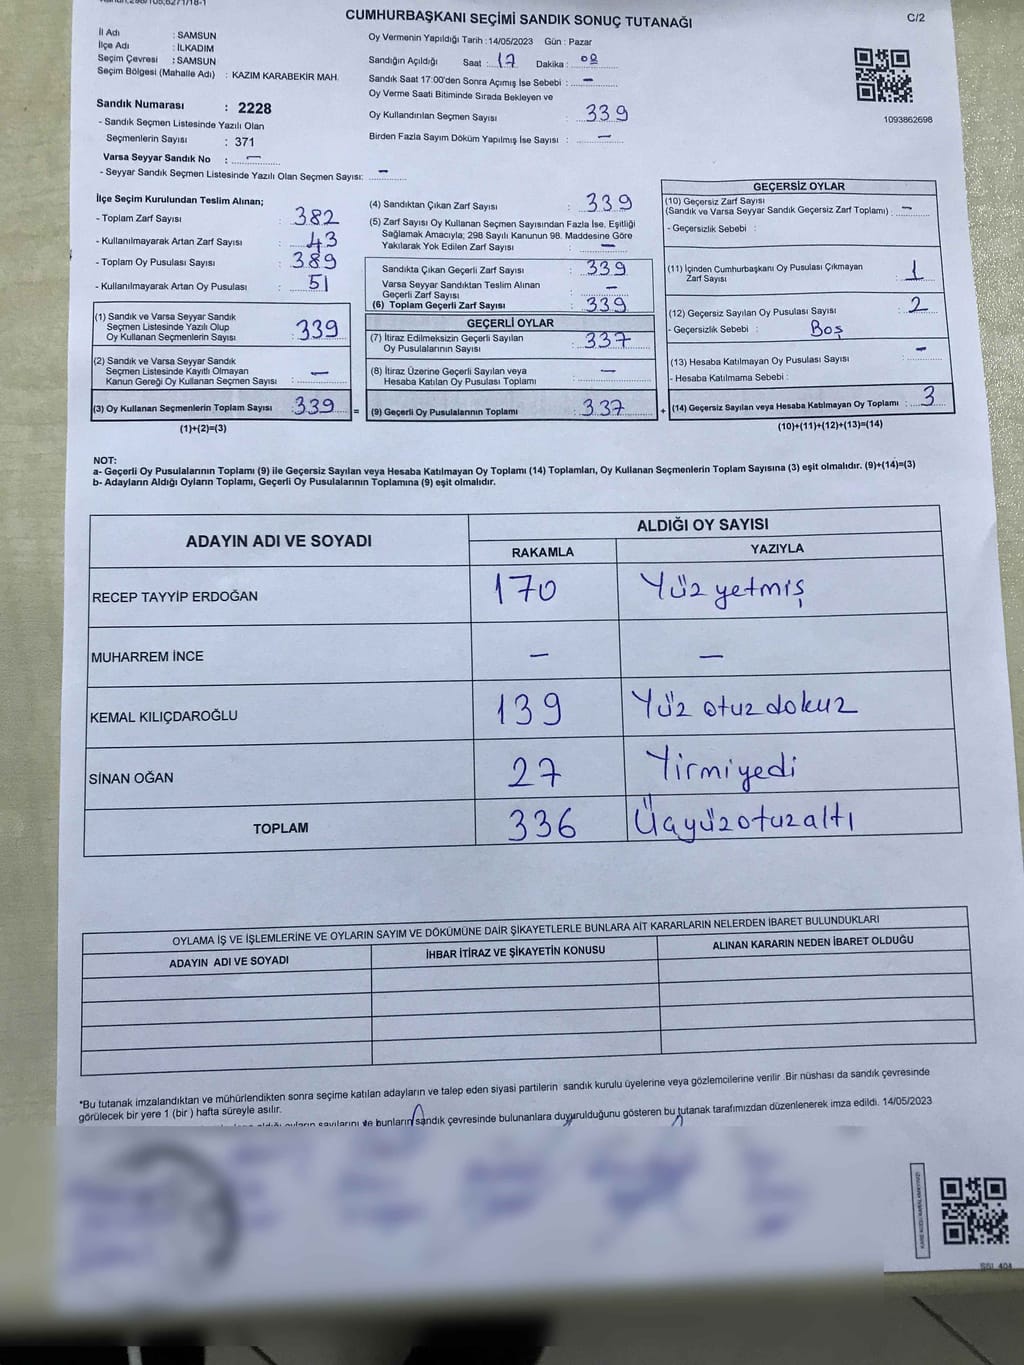 CUMHURBAŞKANI SEÇİMİ SANDIK SONUÇ TUTANAĞI
C/2
İl Adı : SAMSUN
İlçe Adı : İLKADIM
Seçim Çevresi : SAMSUN
Seçim Bölgesi (Mahalle Adı) : KAZIM KARABEKİR MAH.
Sandık Numarası : 2228
- Sandık Seçmen Listesinde Yazılı Olan
Seçmenlerin Sayısı : 371
Varsa Seyyar Sandık No : —
- Seyyar Sandık Seçmen Listesinde Yazılı Olan Seçmen Sayısı: —
Oy Vermenin Yapıldığı Tarih : 14/05/2023 Gün : Pazar
Sandığın Açıldığı Saat : 17 Dakika : 08
Sandık Saat 17:00'den Sonra Açımış Ise Sebebi : —
Oy Verme Saati Bitiminde Sırada Bekleyen ve
Oy Kullandırılan Seçmen Sayısı : 339
Birden Fazla Sayım Döküm Yapılmış Ise Sayısı : —
1093862698
İlçe Seçim Kurulundan Teslim Alınan;
- Toplam Zarf Sayısı : 382
- Kullanılmayarak Artan Zarf Sayısı : 43
- Toplam Oy Pusulası Sayısı : 389
- Kullanılmayarak Artan Oy Pusulası : 51
(1) Sandık ve Varsa Seyyar Sandık
Seçmen Listesinde Yazılı Olup
Oy Kullanan Seçmenlerin Sayısı : 339
(2) Sandık ve Varsa Seyyar Sandık
Seçmen Listesinde Kayıtlı Olmayan
Kanun Gereği Oy Kullanan Seçmen Sayısı : —
(3) Oy Kullanan Seçmenlerin Toplam Sayısı : 339 =
(1)+(2)=(3)
(4) Sandıktan Çıkan Zarf Sayısı : 339
(5) Zarf Sayısı Oy Kullanan Seçmen Sayısından Fazla Ise, Eşitliği
Sağlamak Amacıyla; 298 Sayılı Kanunun 98. Maddesine Göre
Yakılarak Yok Edilen Zarf Sayısı : —
Sandıkta Çıkan Geçerli Zarf Sayısı : 339
Varsa Seyyar Sandıktan Teslim Alınan
Geçerli Zarf Sayısı : —
(6) Toplam Geçerli Zarf Sayısı : 339
GEÇERLİ OYLAR
(7) İtiraz Edilmeksizin Geçerli Sayılan
Oy Pusulalarının Sayısı : 337
(8) İtiraz Üzerine Geçerli Sayılan veya
Hesaba Katılan Oy Pusulası Toplamı : —
(9) Geçerli Oy Pusulalarının Toplamı : 337 +
GEÇERSİZ OYLAR
(10) Geçersiz Zarf Sayısı
(Sandık ve Varsa Seyyar Sandık Geçersiz Zarf Toplamı) : —
- Geçersizlik Sebebi :
(11) İçinden Cumhurbaşkanı Oy Pusulası Çıkmayan
Zarf Sayısı : 1
(12) Geçersiz Sayılan Oy Pusulası Sayısı : 2
- Geçersizlik Sebebi : Boş
(13) Hesaba Katılmayan Oy Pusulası Sayısı : —
- Hesaba Katılmama Sebebi :
(14) Geçersiz Sayılan veya Hesaba Katılmayan Oy Toplamı : 3
(10)+(11)+(12)+(13)=(14)
NOT:
a- Geçerli Oy Pusulalarının Toplamı (9) ile Geçersiz Sayılan veya Hesaba Katılmayan Oy Toplamı (14) Toplamları, Oy Kullanan Seçmenlerin Toplam Sayısına (3) eşit olmalıdır. (9)+(14)=(3)
b- Adayların Aldığı Oyların Toplamı, Geçerli Oy Pusulalarının Toplamına (9) eşit olmalıdır.
ADAYIN ADI VE SOYADI
ALDIĞI OY SAYISI
RAKAMLA YAZIYLA
RECEP TAYYİP ERDOĞAN 170 Yüz yetmiş
MUHARREM İNCE — —
KEMAL KILIÇDAROĞLU 139 Yüz otuz dokuz
SİNAN OĞAN 27 Yirmiyedi
TOPLAM 336 Üçyüzotuzaltı
OYLAMA İŞ VE İŞLEMLERİNE VE OYLARIN SAYIM VE DÖKÜMÜNE DAİR ŞİKAYETLERLE BUNLARA AİT KARARLARIN NELERDEN İBARET BULUNDUKLARI
ADAYIN ADI VE SOYADI İHBAR İTİRAZ VE ŞİKAYETİN KONUSU ALINAN KARARIN NEDEN İBARET OLDUĞU
*Bu tutanak imzalandıktan ve mühürlendikten sonra seçime katılan adayların ve talep eden siyasi partilerin sandık kurulu üyelerine veya gözlemcilerine verilir .Bir nüshası da sandık çevresinde
görülecek bir yere 1 (bir ) hafta süreyle asılır.
oyların sayılarını ve bunların sandık çevresinde bulunanlara duyurulduğunu gösteren bu tutanak tarafımızdan düzenlenerek imza edildi. 14/05/2023